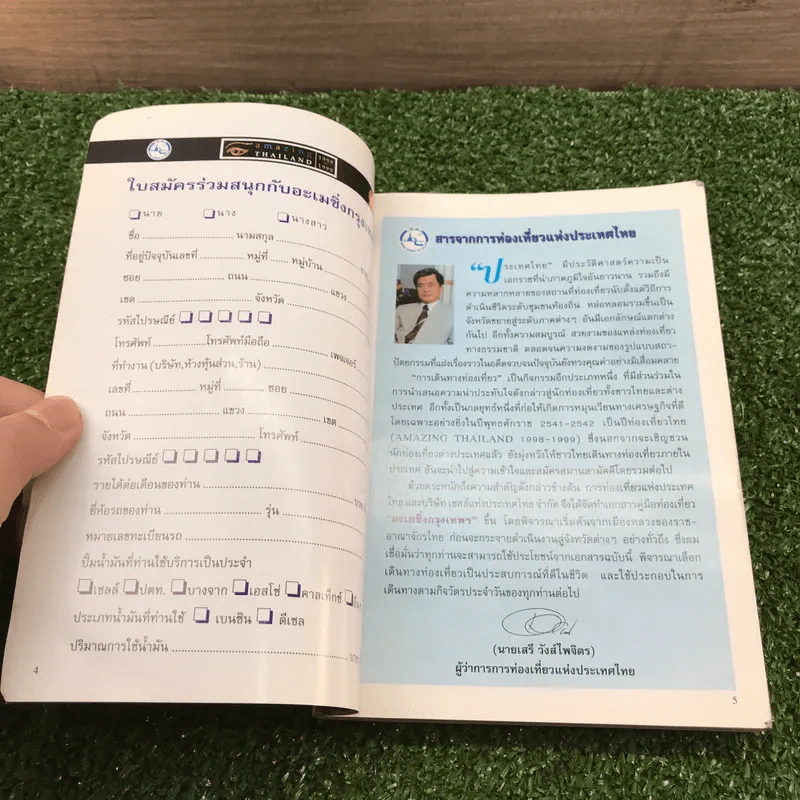 amazing
THAILAND
1998
1999
ใบสมัครร่วมสนุกกับอะเมซิ่งกรุงเทพ
❏ นาย ❏ นาง ❏ นางสาว
ชื่อ นามสกุล
ที่อยู่ปัจจุบันเลขที่ หมู่ที่ หมู่บ้าน
ซอย ถนน แขวง
เขต จังหวัด
รหัสไปรษณีย์ ❏ ❏ ❏ ❏ ❏
โทรศัพท์ โทรศัพท์มือถือ เพจเจอร์
ที่ทำงาน (บริษัท,ห้างหุ้นส่วน,ร้าน)
เลขที่ หมู่ที่ ซอย
ถนน แขวง เขต
จังหวัด โทรศัพท์
รหัสไปรษณีย์ ❏ ❏ ❏ ❏ ❏
รายได้ต่อเดือนของท่าน
ยี่ห้อรถของท่าน รุ่น
หมายเลขทะเบียนรถ
ปั้มน้ำมันที่ท่านใช้บริการเป็นประจำ
❏ เชลล์ ❏ ปตท. ❏ บางจาก ❏ เอสโซ่ ❏ คาลเท็กซ์ ❏
ประเภทน้ำมันที่ท่านใช้ ❏ เบนซิน ❏ ดีเซล
ปริมาณการใช้น้ำมัน
4
สารจากการท่องเที่ยวแห่งประเทศไทย
“ประเทศไทย” มีประวัติศาสตร์ความเป็น
เอกราชที่น่าภาคภูมิใจอันยาวนาน รวมถึงมี
ความหลากหลายของสถานที่ท่องเที่ยวนับตั้งแต่วิถีการ
ดำเนินชีวิตระดับชุมชนท้องถิ่น หล่อหลอมรวมขึ้นเป็น
จังหวัดขยายสู่ระดับภาคต่างๆ อันมีเอกลักษณ์แตกต่าง
กันไป อีกทั้งความสมบูรณ์ สวยงามของแหล่งท่องเที่ยว
ทางธรรมชาติ ตลอดจนความงดงามของรูปแบบสถา-
ปัตยกรรมที่แฝงเรื่องราวในอดีตจวบจนปัจจุบันยังทรงคุณค่าอย่างมิเสื่อมคลาย
“การเดินทางท่องเที่ยว” เป็นกิจกรรมอีกประเภทหนึ่ง ที่มีส่วนร่วมใน
การนำเสนอความน่าประทับใจดังกล่าวสู่นักท่องเที่ยวทั้งชาวไทยและต่าง
ประเทศ อีกทั้งเป็นกลยุทธ์หนึ่งที่ก่อให้เกิดการหมุนเวียนทางเศรษฐกิจที่ดี
โดยเฉพาะอย่างยิ่งในปีพุทธศักราช 2541-2542 เป็นปีท่องเที่ยวไทย
(AMAZING THAILAND 1998-1999) ซึ่งนอกจากจะเชิญชวน
นักท่องเที่ยวต่างประเทศแล้ว ยังมุ่งหวังให้ชาวไทยเดินทางท่องเที่ยวภายใน
ประเทศ อันจะนำไปสู่ความเข้าใจและสมัครสมานสามัคคีโดยรวมต่อไป
ด้วยตระหนักถึงความสำคัญดังกล่าวข้างต้น การท่องเที่ยวแห่งประเทศ
ไทย และบริษัท เชลล์แห่งประเทศไทย จำกัด จึงได้จัดทำเอกสารคู่มือท่องเที่ยว
“อะเมซิ่งกรุงเทพฯ” ขึ้น โดยพิจารณาเริ่มต้นจากเมืองหลวงของราช-
อาณาจักรไทย ก่อนจะกระจายดำเนินงานสู่จังหวัดต่างๆ อย่างทั่วถึง ซึ่งผม
เชื่อมั่นว่าทุกท่านจะสามารถใช้ประโยชน์จากเอกสารฉบับนี้ พิจารณาเลือก
เดินทางท่องเที่ยวเป็นประสบการณ์ที่ดีในชีวิต และใช้ประกอบในการ
เดินทางตามกิจวัตรประจำวันของทุกท่านต่อไป
(นายเสรี วังส์ไพจิตร)
ผู้ว่าการการท่องเที่ยวแห่งประเทศไทย
5